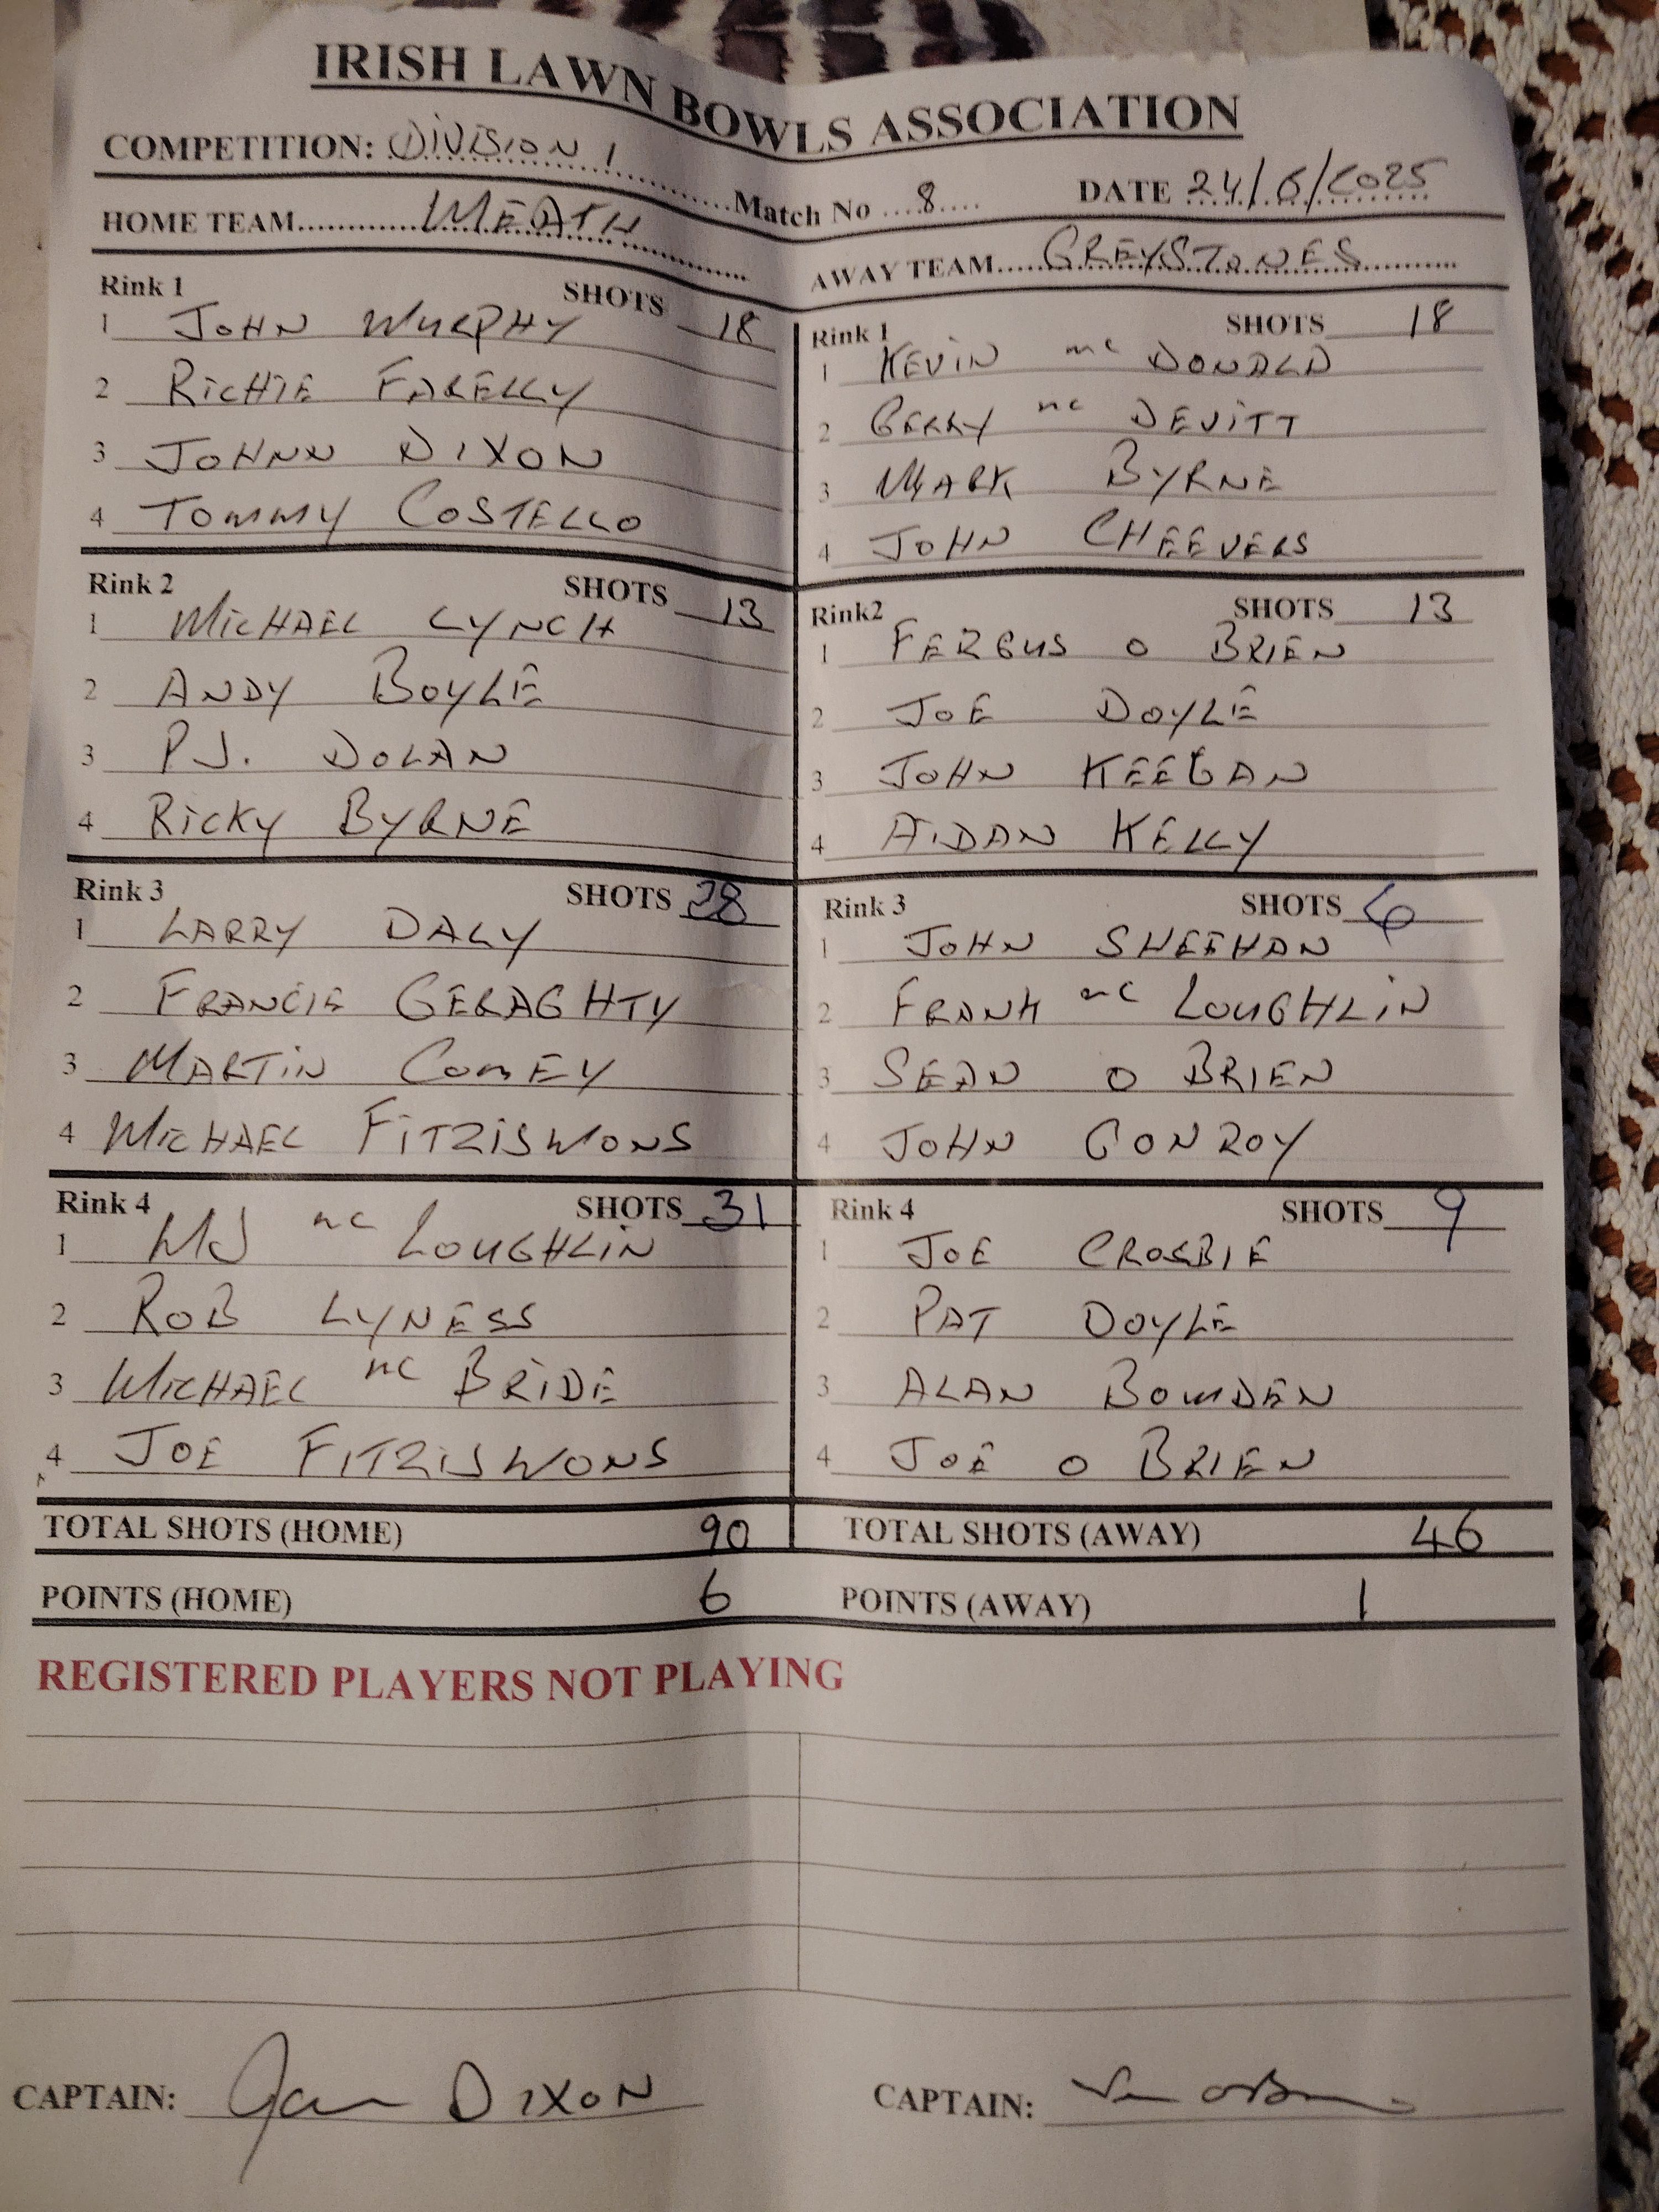 IRISH LAWN BOWLS ASSOCIATION
COMPETITION: DIVISION 1 Match No 8 DATE 24/6/2025
HOME TEAM MEATH
AWAY TEAM GREYSTONES
Rink 1 SHOTS 18
1 JOHN MURPHY
2 RICHIE FARELLY
3 JOHNN DIXON
4 TOMMY COSTELLO
Rink 1 SHOTS 18
1 KEVIN MC DONALD
2 GERRY MC DEVITT
3 MARK BYRNE
4 JOHN CHEEVERS
Rink 2 SHOTS 13
1 MICHAEL LYNCH
2 ANDY BOYLE
3 PJ. DOLAN
4 RICKY BYRNE
Rink2 SHOTS 13
1 FERGUS O BRIEN
2 JOE DOYLE
3 JOHN KEEGAN
4 AIDAN KELLY
Rink 3 SHOTS 28
1 LARRY DALY
2 FRANCIE GERAGHTY
3 MARTIN COMEY
4 MICHAEL FITZISMONS
Rink 3 SHOTS 6
1 JOHN SHEEHAN
2 FRANK MC LOUGHLIN
3 SEAN O BRIEN
4 JOHN CONROY
Rink 4 SHOTS 31
1 MJ MC LOUGHLIN
2 ROB LYNESS
3 MICHAEL MC BRIDE
4 JOE FITZISMONS
Rink 4 SHOTS 9
1 JOE CROSBIE
2 PAT DOYLE
3 ALAN BOWDEN
4 JOE O BRIEN
TOTAL SHOTS (HOME) 90 TOTAL SHOTS (AWAY) 46
POINTS (HOME) 6 POINTS (AWAY) 1
REGISTERED PLAYERS NOT PLAYING
CAPTAIN: DIXON
CAPTAIN: